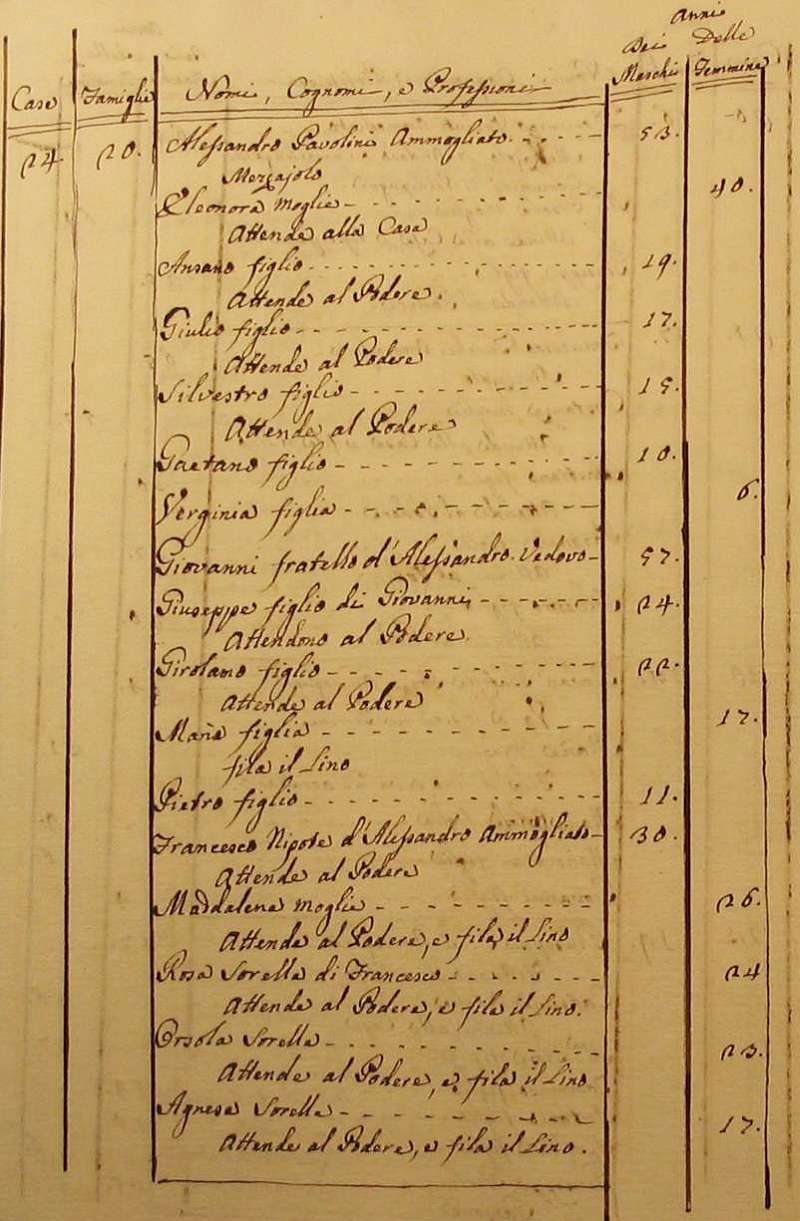 Anni
Dei Delle
Case Famiglie Nomi, Cognomi, e Professioni Maschi Femmine
24. 20. Alessandro Pavolini Ammogliato 53.
Mezzajolo
Eleonora Moglie 40.
Attende alla Casa
Ansano figlio 19.
Attende al Podere.
Giulio figlio 17.
Attende al Podere
Silvestro figlio 15.
Attende al Podere
Gaetano figlio 10.
Verginia figlia 6.
Giovanni fratello d'Alessandro Vedovo 57.
Giuseppe figlio di Giovanni 24.
Attendono al Podere
Girolamo figlio 22.
Attende al Podere
Maria figlia 17.
fila il Lino
Pietro figlio 11.
Francesco Nipote d'Alessandro Ammogliato 30.
Attende al Podere
Maddalena Moglie 26.
Attende al Podere, e fila il Lino
Rosa Sorella di Francesco 24
Attende al Podere, e fila il Lino.
Orsola Sorella 23.
Attende al Podere, e fila il Lino
Agnesa Sorella 17.
Attende al Podere, e fila il Lino.